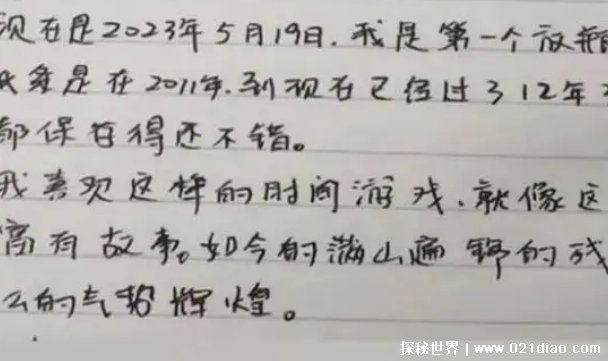 现在是2023年5月19日.我是第一个放瓶
是在2011年.到现在已经过了12年
都保存得还不错。
我喜欢这样的时间游戏、就像这
富有故事。如今的满山遍野的残
么的气势辉煌。
探秘世界 | www.021diao.com